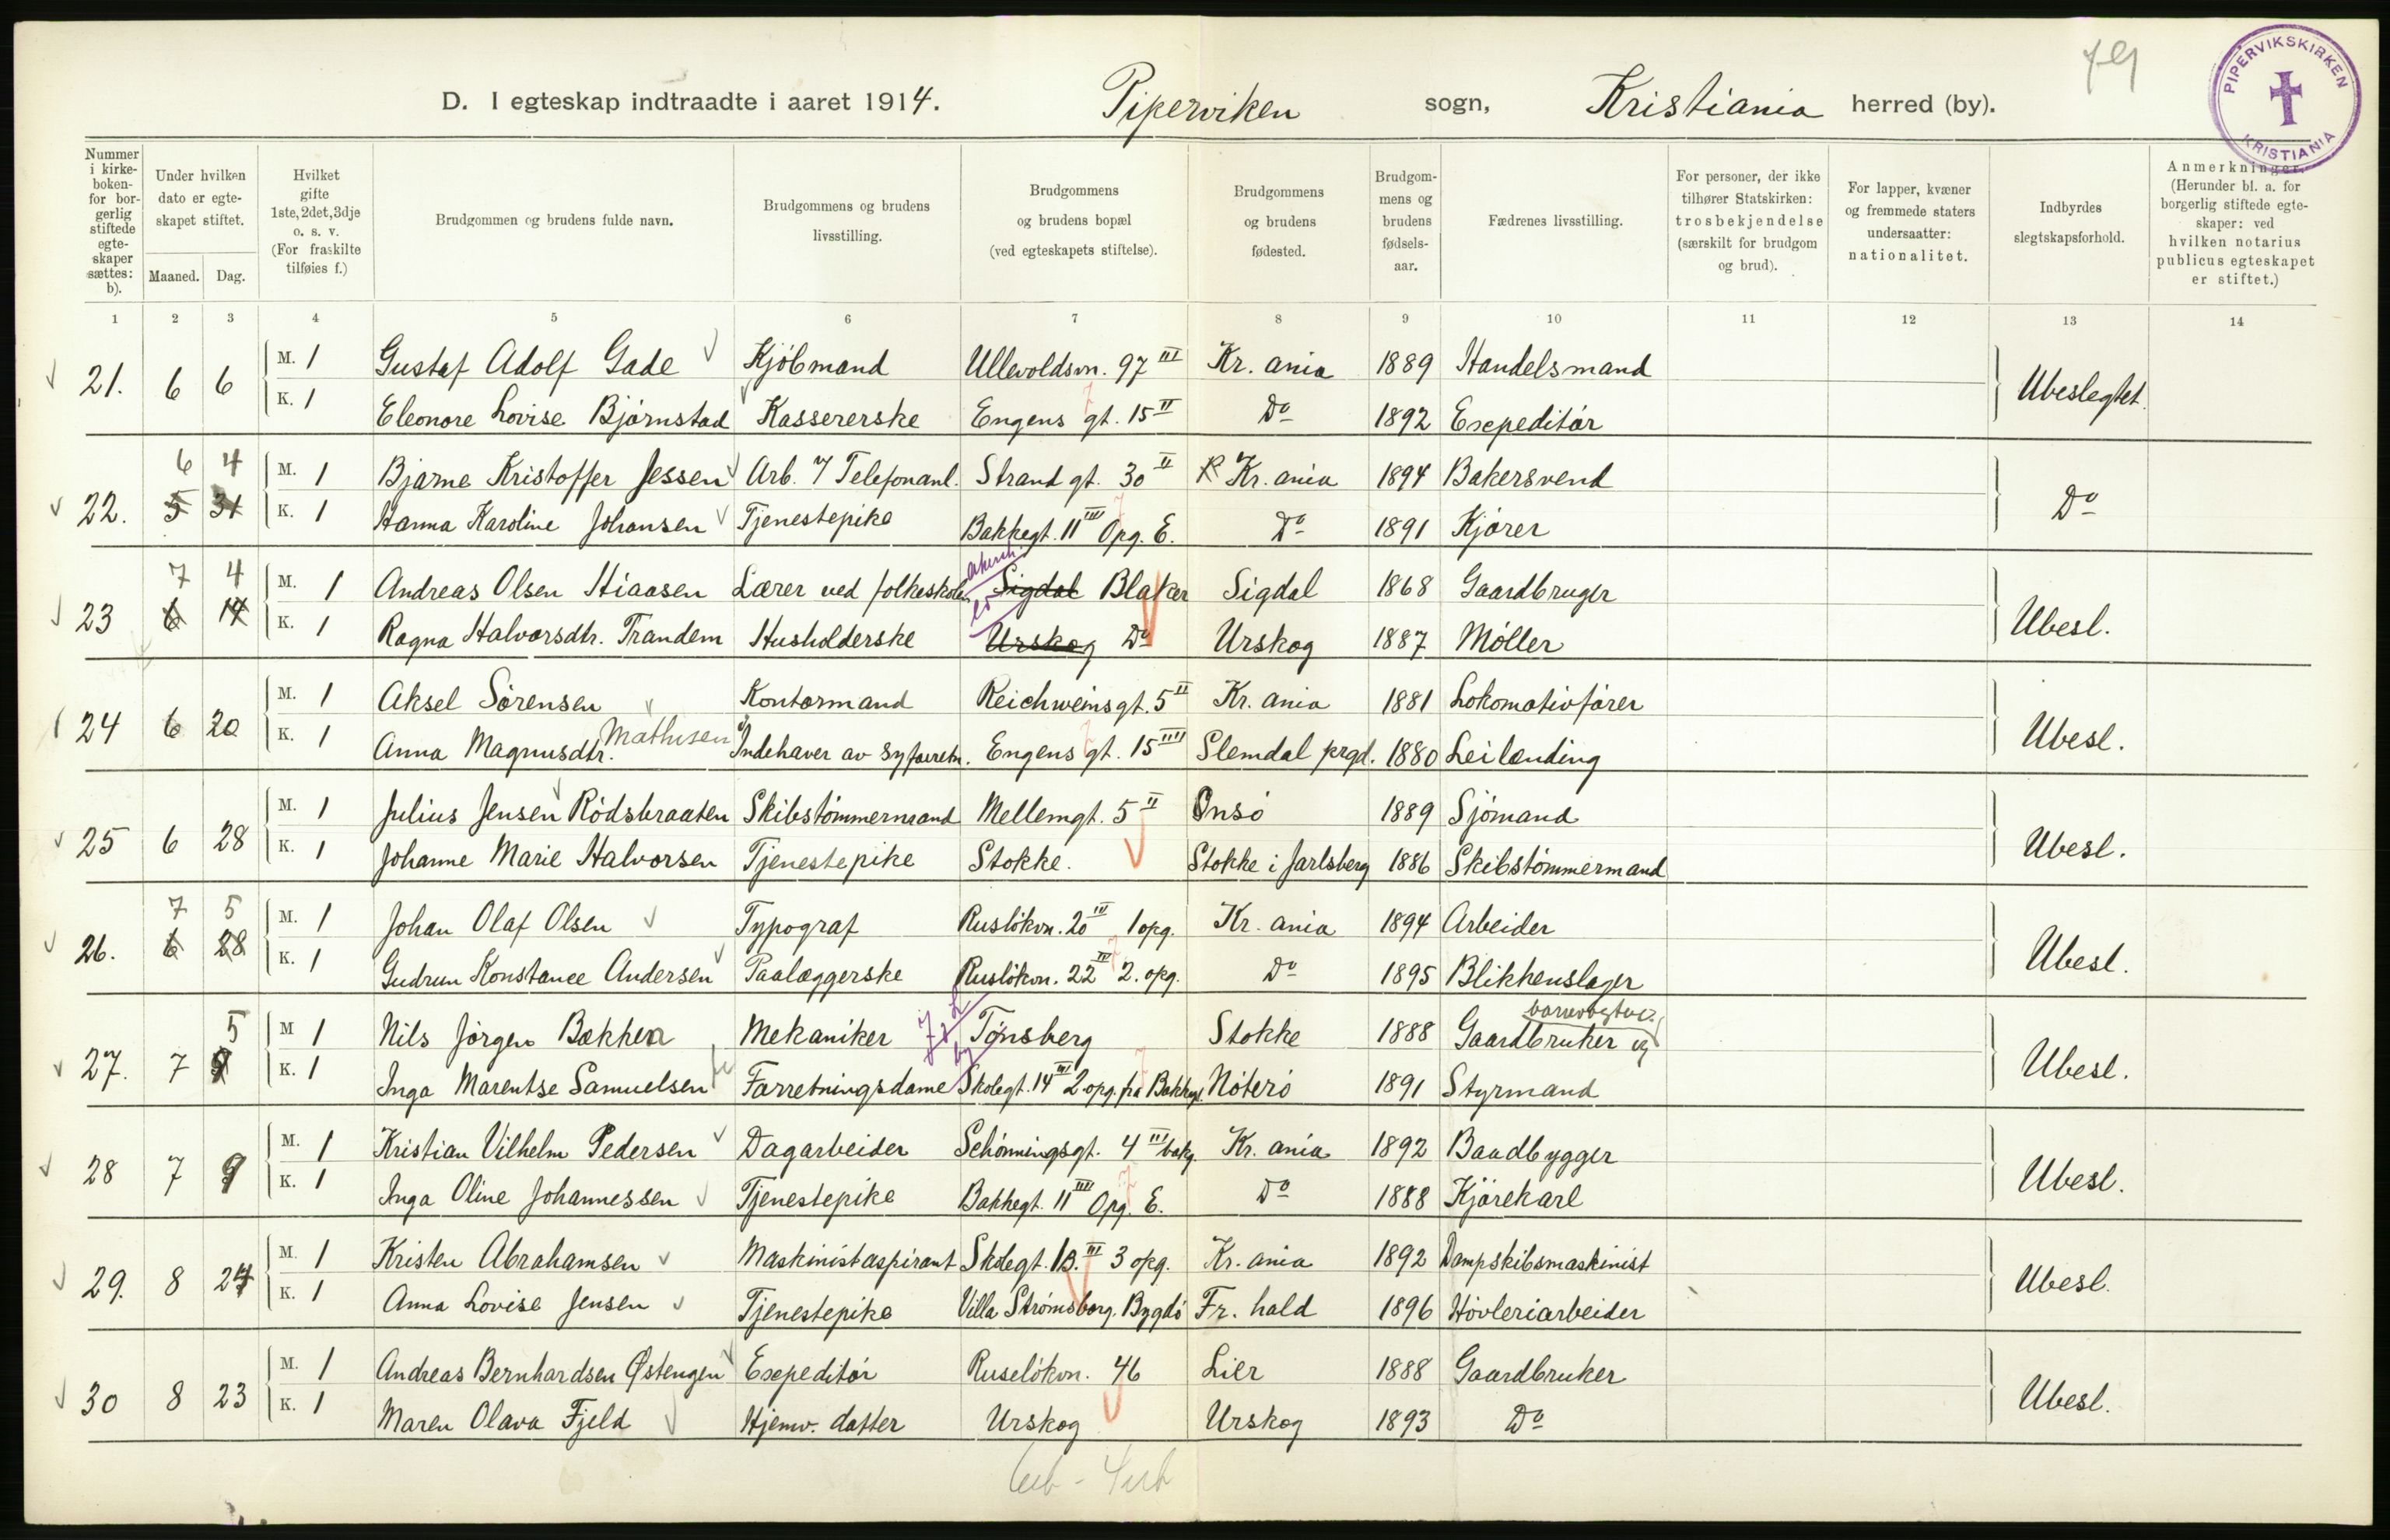 79
PIPERVIKSKIRKEN
KRISTIANIA
D. I egteskap indtraadte i aaret 1914. Piperviken sogn, Kristiania herred (by).
Nummer i kirkeboken- for borgerlig stiftede egteskaper sættes: b).
Under hvilken dato er egteskapet stiftet.
Maaned. Dag.
Hvilket gifte 1ste, 2det, 3dje o. s. v. (For fraskilte tilføies f.)
Brudgommen og brudens fulde navn.
Brudgommens og brudens livsstilling.
Brudgommens og brudens bopæl (ved egteskapets stiftelse).
Brudgommens og brudens fødested.
Brudgommens og brudens fødselsaar.
Fædrenes livsstilling.
For personer, der ikke tilhører Statskirken: trosbekjendelse (særskilt for brudgom og brud).
For lapper, kvæner og fremmede staters undersaatter: nationalitet.
Indbyrdes slegtskapsforhold.
Anmerkninger. (Herunder bl. a. for borgerlig stiftede egteskaper: ved hvilken notarius publicus egteskapet er stiftet.)
1 2 3 4 5 6 7 8 9 10 11 12 13 14
21. 6 6 M. 1 Gustaf Adolf Gade Kjöbmand Ullevoldsvn. 97 III Kr. ania 1889 Handelsmand Ubeslegtet.
K. 1 Eleonore Lovise Björnstad Kassererske Engens gt. 15 II Do 1892 Exepeditör
22. 6 4 5 31 M. 1 Bjarne Kristoffer Jessen Arb. v/ Telefonanl. Strand gt. 30 II Kr. ania 1894 Bakersvend Do
K. 1 Hanna Karoline Johansen Tjenestepike Bakkegt. 11 III Opg. E. Do 1891 Kjörer
23 7 4 6 14 M. 1 Andreas Olsen Hiaasen Lærer ved folkeskolen Sigdal Blaker Sigdal 1868 Gaardbruger Ubesl.
K. 1 Ragna Halvorsdtr. Trandem Husholderske Urskog Do Urskog 1887 Möller
24 6 20 M. 1 Aksel Sörensen Kontormand Reichweinsgt. 5 II Kr. ania 1881 Lokomotivförer Ubesl.
K. 1 Anna Magnusdtr. Mathisen Indehaver av syforretn. Engens gt. 15 IIII Slemdal prgd. 1880 Leilending
25 6 28 M. 1 Julius Jensen Rödsbraaten Skibstömmermand Mellemgt. 5 II Onsö 1889 Sjömand Ubesl.
K. 1 Johanne Marie Halvorsen Tjenestepike Stokke. Stokke i Jarlsberg 1886 Skibstömmermand
26. 7 5 6 28 M. 1 Johan Olaf Olsen Typograf Ruslökvn. 20 IV 1 opg. Kr. ania 1894 Arbeider Ubesl.
K. 1 Gudrun Konstance Andersen Paalæggerske Ruslökvn. 22 IV 2. opg. Do 1895 Blikkenslager
27. 7 5 9 M 1 Nils Jörgen Bækken Mekaniker Tönsberg Stokke 1888 Gaardbruker og Ubesl.
K. 1 Inga Marentse Samuelsen Forretningsdame Skolegt. 14 III 2 opg. fra Bakkegt. Nöterö 1891 Styrmand
28 7 9 M. 1 Kristian Vilhelm Pedersen Dagarbeider Schönningsgt. 4 III bakg. Kr. ania 1892 Baadbygger Ubesl.
K. 1 Inga Oline Johannessen Tjenestepike Bakkegt. 11 IIII Opg. E. Do 1888 Kjörekarl
29. 8 24 M. 1 Kristen Abrahamsen Maskinistaspirant Skolegt. 13. III 3 opg. Kr. ania 1892 Dampskibsmaskinist Ubesl.
K. 1 Anna Lovise Jensen Tjenestepike Villa Strömsborg. Bygdö Fr. hald 1896 Hövleriarbeider
30 8 23 M. 1 Andreas Bernhardsen Østengen Exepeditör Ruselökvn. 46 Lier 1888 Gaardbruker Ubesl.
K. 1 Maren Olava Fjeld Hjemv. datter Urskog Urskog 1893 Do